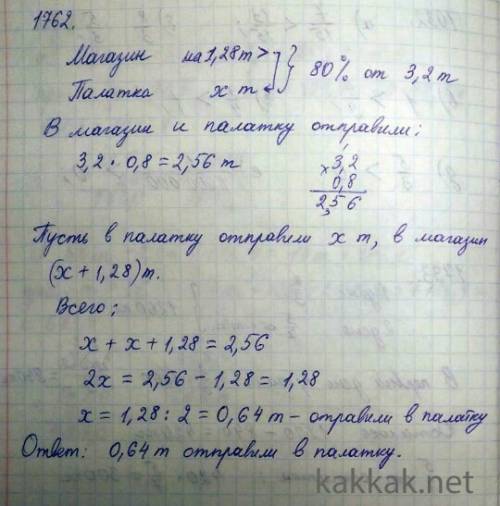 1762.
Магазин на 1,28 т > } 80% от 3,2 т
Палатка x т
В магазин и палатку отправили:
3,2 · 0,8 = 2,56 т
× 3,2
0,8
2,56
Пусть в палатку отправили x т, в магазин
(x + 1,28) т.
Всего:
x + x + 1,28 = 2,56
2x = 2,56 - 1,28 = 1,28
x = 1,28 : 2 = 0,64 т - отравили в палатку
Ответ: 0,64 т отправили в палатку.
kakkak.net